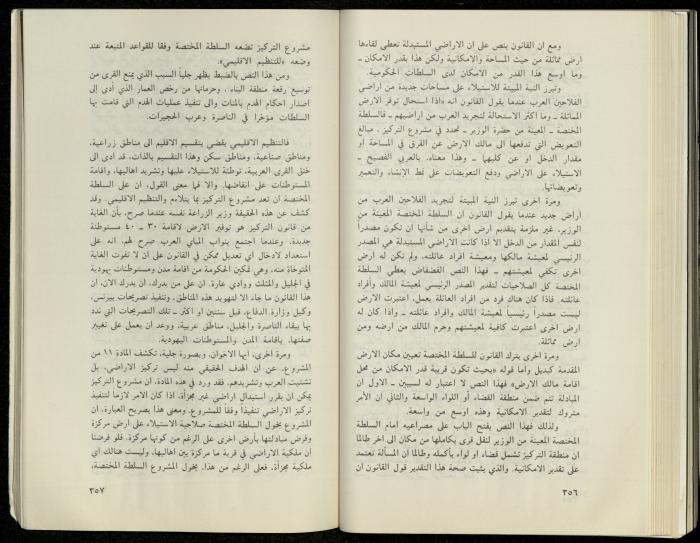 ومع ان القانون ينص على ان الاراضي المستبدلة تعطى لقاءها
ارض مماثلة من حيث المساحة والامكانية ولكن هذا بقدر الامكان ـ
وما اوسع هذا القدر من الامكان لدى السلطات الحكومية.
وتبرز النية المبيتة للاستيلاء على مساحات جديدة من اراضي
الفلاحين العرب عندما يقول القانون انه «اذا استحال توفر الارض
المماثلة ـ وما اكثر الاستحالة لتجريد العرب من اراضيهم ـ فالسلطة
المختصة ـ المعينة من حضرة الوزير ـ تحدد في مشروع التركيز . مبالغ
التعويض التي تدفعها الى مالك الارض عن الفرق في المساحة او
مقدار الدخل او عن كليهما ـ وهذا معناه. بالعربي الفصيح ـ
الاستيلاء على الاراضي ودفع التعويضات على نمط الإنشاء والتعمير
وتعويضاتها.
ومرة اخرى تبرز النية المبيتة لتجريد الفلاحين العرب من
اراض جديد عندما يقول القانون ان السلطة المختصة المعينة من
الوزير، غير ملزمة بتقديم ارض اخرى من شأنها ان تكون مصدراً
لنفس المقدار من الدخل الا اذا كانت الاراضي المستبدلة هي المصدر
الرئيسي لمعيشة مالكها ومعيشة افراد عائلته، ولم تكن له ارض
اخرى تكفي لمعيشتهم ـ فهذا النص الفضفاض يعطي السلطة
المختصة كل الصلاحيات لتقدير المصدر الرئيسي لمعيشة المالك وأفراد
عائلته. فاذا كان هناك فرد من افراد العائلة يعمل، اعتبرت الارض
ليست مصدراً رئيسياً لمعيشة المالك وافراد عائلته ـ واذا كان له
ارض اخرى اعتبرت كافية لمعيشتهم وجرم المالك من ارضه ومن
ارض مماثلة.
ومرة اخرى يترك القانون للسلطة المختصة تعيين مكان الارض
المقدمة كبديل واما قوله «بحيث تكون قريبة قدر الامكان من محل
اقامة مالك الارض» فهذا النص لا اعتبار له لسببين ـ الاول ان
المبادلة تتم ضمن منطقة القضاء أو اللواء الواسعة والثاني ان الأمر
متروك لتقدير الامكانية وهذه اوسع من واسعة.
ولذلك فهذا النص يفتح الباب على مصراعيه امام السلطة
المختصة المعينة من الوزير لنقل قرى بكاملها من مكان الى اخر طالما
ان منطقة التركيز تشمل قضاء او لواء بأكمله وطالما ان المسألة تعتمد
على تقدير الامكانية. والذي يثبت صحة هذا التقدير قول القانون ان
٣٥٦
مشروع التركيز تضعه السلطة المختصة وفقا للقواعد المتبعة عند
وضعه «للتنظيم الاقليمي».
ومن هذا النص بالضبط يظهر جلياً السبب الذي يمنع القرى من
توسيع رقعة منطقة البناء ، وحرمانها من رخص العمار الذي أدى إلى
اصدار احكام الهدم بالمئات والى تنفيذ عمليات الهدم التي قامت بها
السلطات مؤخرا في الناصرة وعرب الحجيرات.
فالتنظيم الاقليمي يقضي بتقسيم الاقليم الى مناطق زراعية،
ومناطق صناعية، ومناطق سكن وهذا التقسيم بالذات، قد ادى الى
خنق القرى العربية، توطئة للاستيلاء عليها وتشريد اهاليها، واقامة
المستوطنات على انقاضها. والا فما معنى القول، ان على السلطة
المختصة ان تعد مشروع التركيز بما يتلاءم والتنظيم الاقليمي. وقد
كشف عن هذه الحقيقة وزير الزراعة نفسه عندما صرح، بأن الغاية
من قانون التركيز هو توفير الارض لاقامة ٣٠ ـ ٤٠ مستوطنة
جديدة. وعندما اجتمع بنواب المباي العرب صرح لهم، انه على
استعداد لادخال اي تعديل ممكن في القانون على ان لا تفوت الغاية
المتوخاة منه، وهي تمكين الحكومة من اقامة مدن ومستوطنات يهودية
في الجليل والمثلث ووادي عارة. ان على من يدرك، ان يدرك الان، ان
هذا القانون ما جاء الا لتهويد هذه المناطق. وتنفيذ تصريحات بيرس،
وكيل وزارة الدفاع، قبل سنتين او اكثر ـ تلك التصريحات التي ندد
بها ببقاء الناصرة والجليل، مناطق عربية، ووعد ان يعمل على تغيير
صفتها. باقامة المدن والمستوطنات اليهودية.
ومرة اخرى، ايها الاخوان، وبصورة جلية، تكشف المادة ١١ من
المشروع، عن ان الهدف الحقيقي منه ليس تركيز الاراضي، بل
تشتيت العرب وتشريدهم. فقد ورد في هذه المادة، ان مشروع التركيز
يمكن ان يقرر استبدال اراضي غير مجزأة. اذا كان الامر لازما لتنفيذ
تركيز الاراضي تنفيذاً وفقا للمشروع. ومعنى هذا بصريح العبارة، ان
المشروع يخول السلطة المختصة صلاحية الاستيلاء على ارض مركزة
وفرض مبادلتها بأرض اخرى على الرغم من كونها مركزة. فلو فرضنا
ان ملكية الاراضي في قرية ما مركزة بين اهاليها، وليست هنالك أي
ملكية مجزأة. فعلى الرغم من هذا. يخول المشروع السلطة المختصة،
٣٥٧